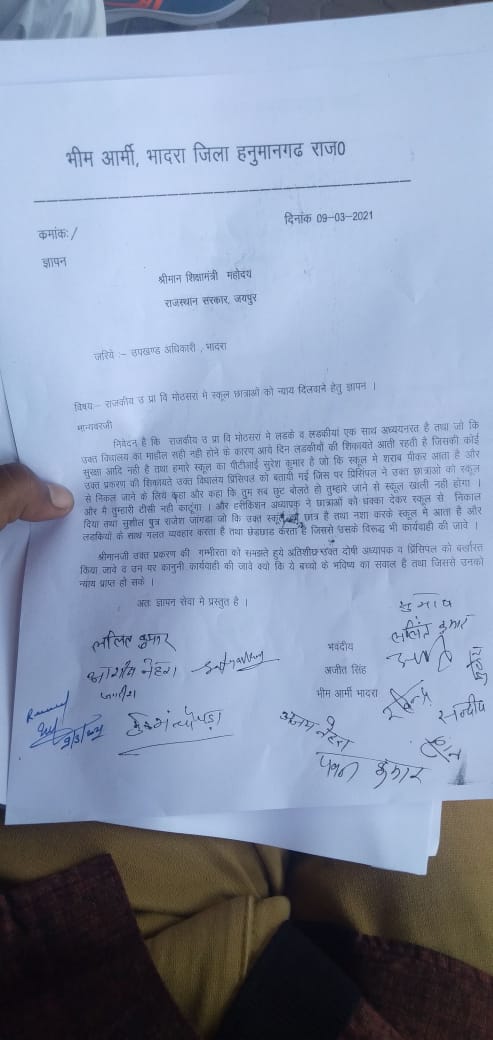 भीम आर्मी, भादरा जिला हनुमानगढ राज0
दिनांक 09-03-2021
कमांकः/
ज्ञापन
श्रीमान शिक्षामंत्री महोदय
राजस्थान सरकार, जयपुर
जरिये :- उपखण्ड अधिकारी , भादरा
विषयः- राजकीय उ प्रा वि मोठसरा मे स्कूल छात्राओं को न्याय दिलवाने हेतु ज्ञापन ।
मान्यवरजी
निवेदन है कि राजकीय उ प्रा वि मोठसरा मे लडके व लडकीयां एक साथ अध्ययनरत है तथा जो कि
उक्त विधालय का माहौल सही नही होने के कारण आये दिन लडकीयों की शिकायते आती रहती है जिसकी कोई
सुरक्षा आदि नही है तथा हमारे स्कूल का पीटीआई सुरेश कुमार है जो कि स्कूल मे शराब पीकर आता है और
उक्त प्रकरण की शिकायते उक्त विधालय प्रिंसिपल को बतायी गई जिस पर प्रिंसिपल ने उक्त छात्राओं को स्कूल
से निकल जाने के लिये कहा और कहा कि तुम सब छुट बोलते हो तुम्हारे जाने से स्कूल खाली नही होगा ।
और मै तुम्हारी टीसी नही काटूंगा । और हरीकिशन अध्यापक ने छात्राओं को धक्का देकर स्कूल से निकाल
दिया तथा सुशील पुत्र राजेश जांगडा जो कि उक्त स्कूल छात्र है तथा नशा करके स्कूल मे आता है और
लडकियों के साथ गलत व्यवहार करता है तथा छेडछाड करता है जिससे उसके विरूद्ध भी कार्यवाही की जावे ।
श्रीमानजी उक्त प्रकरण की गम्भीरता को समझते हुये अतिशीघ्र उक्त दोषी अध्यापक व प्रिंसिपल को बर्खास्त
किया जावे व उन पर कानुनी कार्यवाही की जावे क्यो कि ये बच्चो के भविष्य का सवाल है तथा जिससे उनको
न्याय प्राप्त हो सके ।
अतः ज्ञापन सेवा मे प्रस्तुत है ।
सुभाष
ललित कुमार
भवदीय
ललित कुमार
अजीत सिंह
भीम आर्मी भादरा
सन्दीप
9/3/21
पवन कुमार